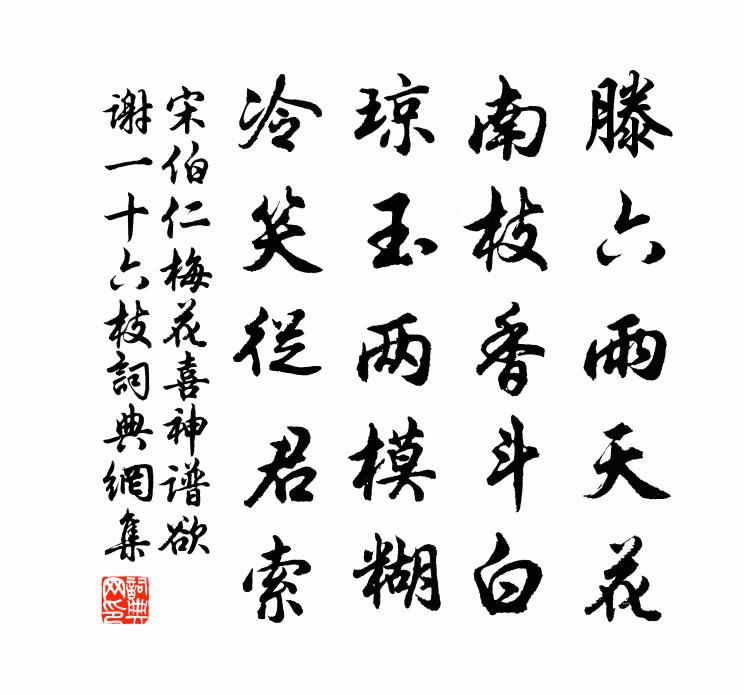 滕六雨天花
南枝香斗白
琼玉两模糊
冷笑從君索
宋伯仁梅花喜神谱欲
謝一十六枝詞典網集